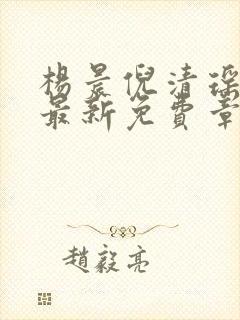 楊晨倪清瑤
最新免費章
趙毅亮